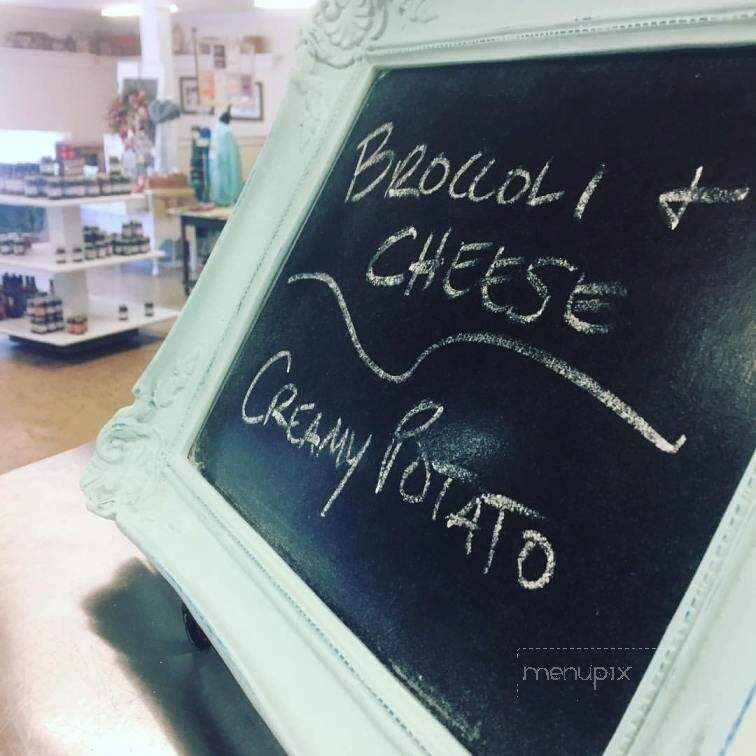 BROCCOLI +
CHEESE
CREAMY POTATO
menupix